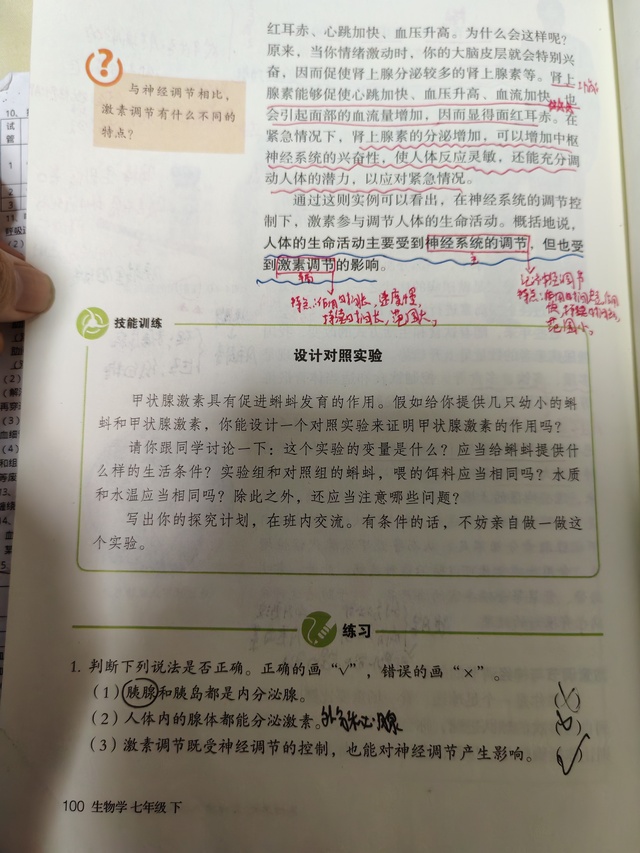 红耳赤、心跳加快、血压升高。为什么会这样呢？
原来，当你情绪激动时，你的大脑皮层就会特别兴
奋，因而促使肾上腺分泌较多的肾上腺素等。肾上
腺素能够促使心跳加快、血压升高、血流加快，也
会引起面部的血流量增加，因而显得面红耳赤。在
紧急情况下，肾上腺素的分泌增加，可以增加中枢
神经系统的兴奋性，使人体反应灵敏，还能充分调
动人体的潜力，以应对紧急情况。
通过这则实例可以看出，在神经系统的调节控
制下，激素参与调节人体的生命活动。概括地说，
人体的生命活动主要受到神经系统的调节，但也受
到激素调节的影响。
与神经调节相比，
激素调节有什么不同的
特点？
主
辅
特点：作用时间长，速度慢，
持续时间长，范围大。
范围小。
技能训练
设计对照实验
甲状腺激素具有促进蝌蚪发育的作用。假如给你提供几只幼小的蝌
蚪和甲状腺激素，你能设计一个对照实验来证明甲状腺激素的作用吗？
请你跟同学讨论一下：这个实验的变量是什么？应当给蝌蚪提供什
么样的生活条件？实验组和对照组的蝌蚪，喂的饵料应当相同吗？水质
和水温应当相同吗？除此之外，还应当注意哪些问题？
写出你的探究计划，在班内交流。有条件的话，不妨亲自做一做这
个实验。
练习
1. 判断下列说法是否正确。正确的画“√”，错误的画“×”。
（1）胰腺和胰岛都是内分泌腺。
（2）人体内的腺体都能分泌激素。外分泌腺
（3）激素调节既受神经调节的控制，也能对神经调节产生影响。
100 生物学 七年级 下